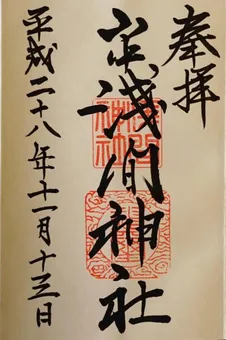 奉拝
浅間神社
平成二十八年十一月十三日